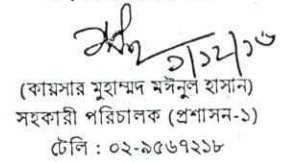 ২/১২/১৬
(কায়সার মুহাম্মদ মঈনুল হাসান)
সহকারী পরিচালক (প্রশাসন-১)
টেলি : ০২-৯৫৬৭২১৮